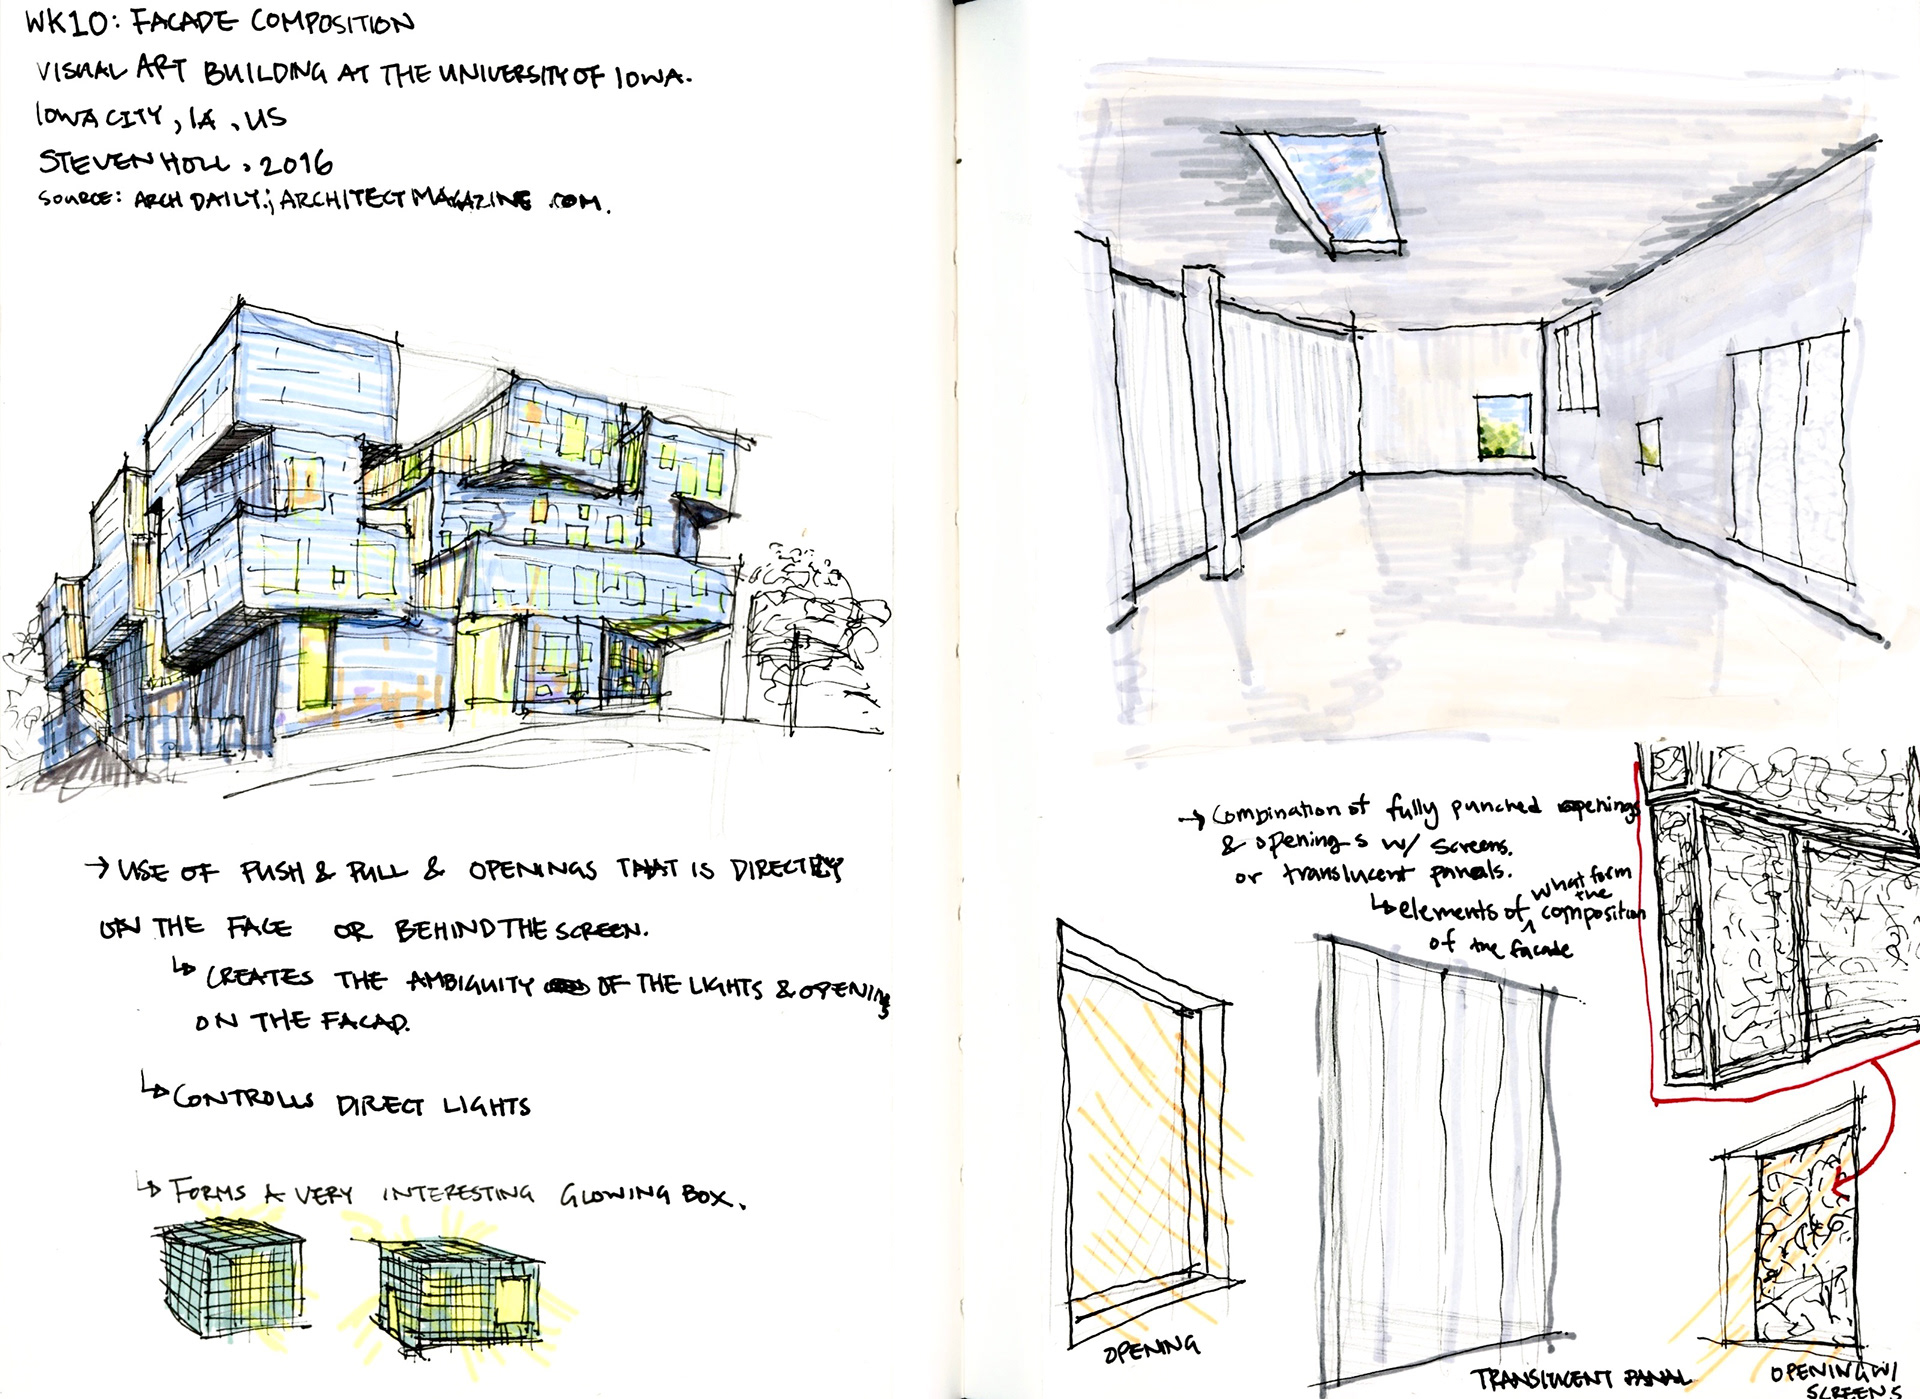 WK10: FACADE COMPOSITION
VISUAL ART BUILDING AT THE UNIVERSITY OF IOWA.
IOWA CITY, IA, US
STEVEN HOLL, 2016
SOURCE: ARCH DAILY; ARCHITECT MAGAZINE.COM.
→ USE OF PUSH & PULL & OPENINGS THAT IS DIRECTLY
ON THE FACE OR BEHIND THE SCREEN.
↳ CREATES THE AMBIGUITY OF THE LIGHTS & OPENINGS
ON THE FACAD.
↳ CONTROLLS DIRECT LIGHTS
↳ FORMS A VERY INTERESTING GLOWING BOX.
→ Combination of fully punched openings
& openings w/ screens.
or translucent panals.
↳ elements of what form the composition
of the facade
OPENING
TRANSLUCENT PANAL
OPENING W/
SCREENS